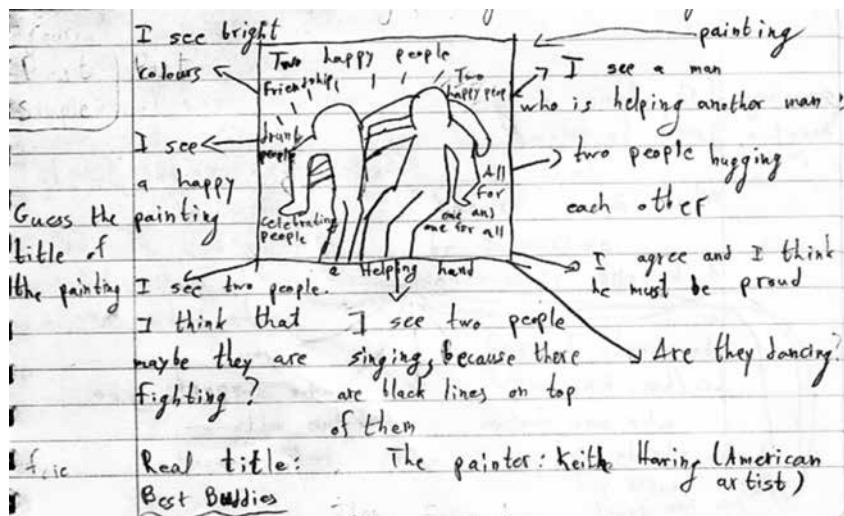 painting
I see bright
colours
Two happy people
Friendship
Two
happy peop
drunk
people
celebrating
people
All
For
one and
one for all
a Helping hand
I see a man
who is helping another man
I see
a happy
painting
two people hugging
each other
Guess the
title of
the painting
I agree and I think
he must be proud
I see two people.
I think that
maybe they are
fighting?
I see two people
singing, because there
are black lines on top
of them
Are they dancing?
Real title:
Best Buddies
The painter: Keith Haring (American
artist)